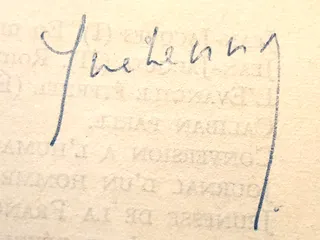 Guehenno
JEAN-JACQUES (I). EN
JEAN-JACQUES
L'ÉVANGILE ÉTERNEL (É
CALIBAN PARLE.
CONVERSION A L'HUMA
JOURNAL D'UN HOMME
JEUNESSE DE LA FRANC